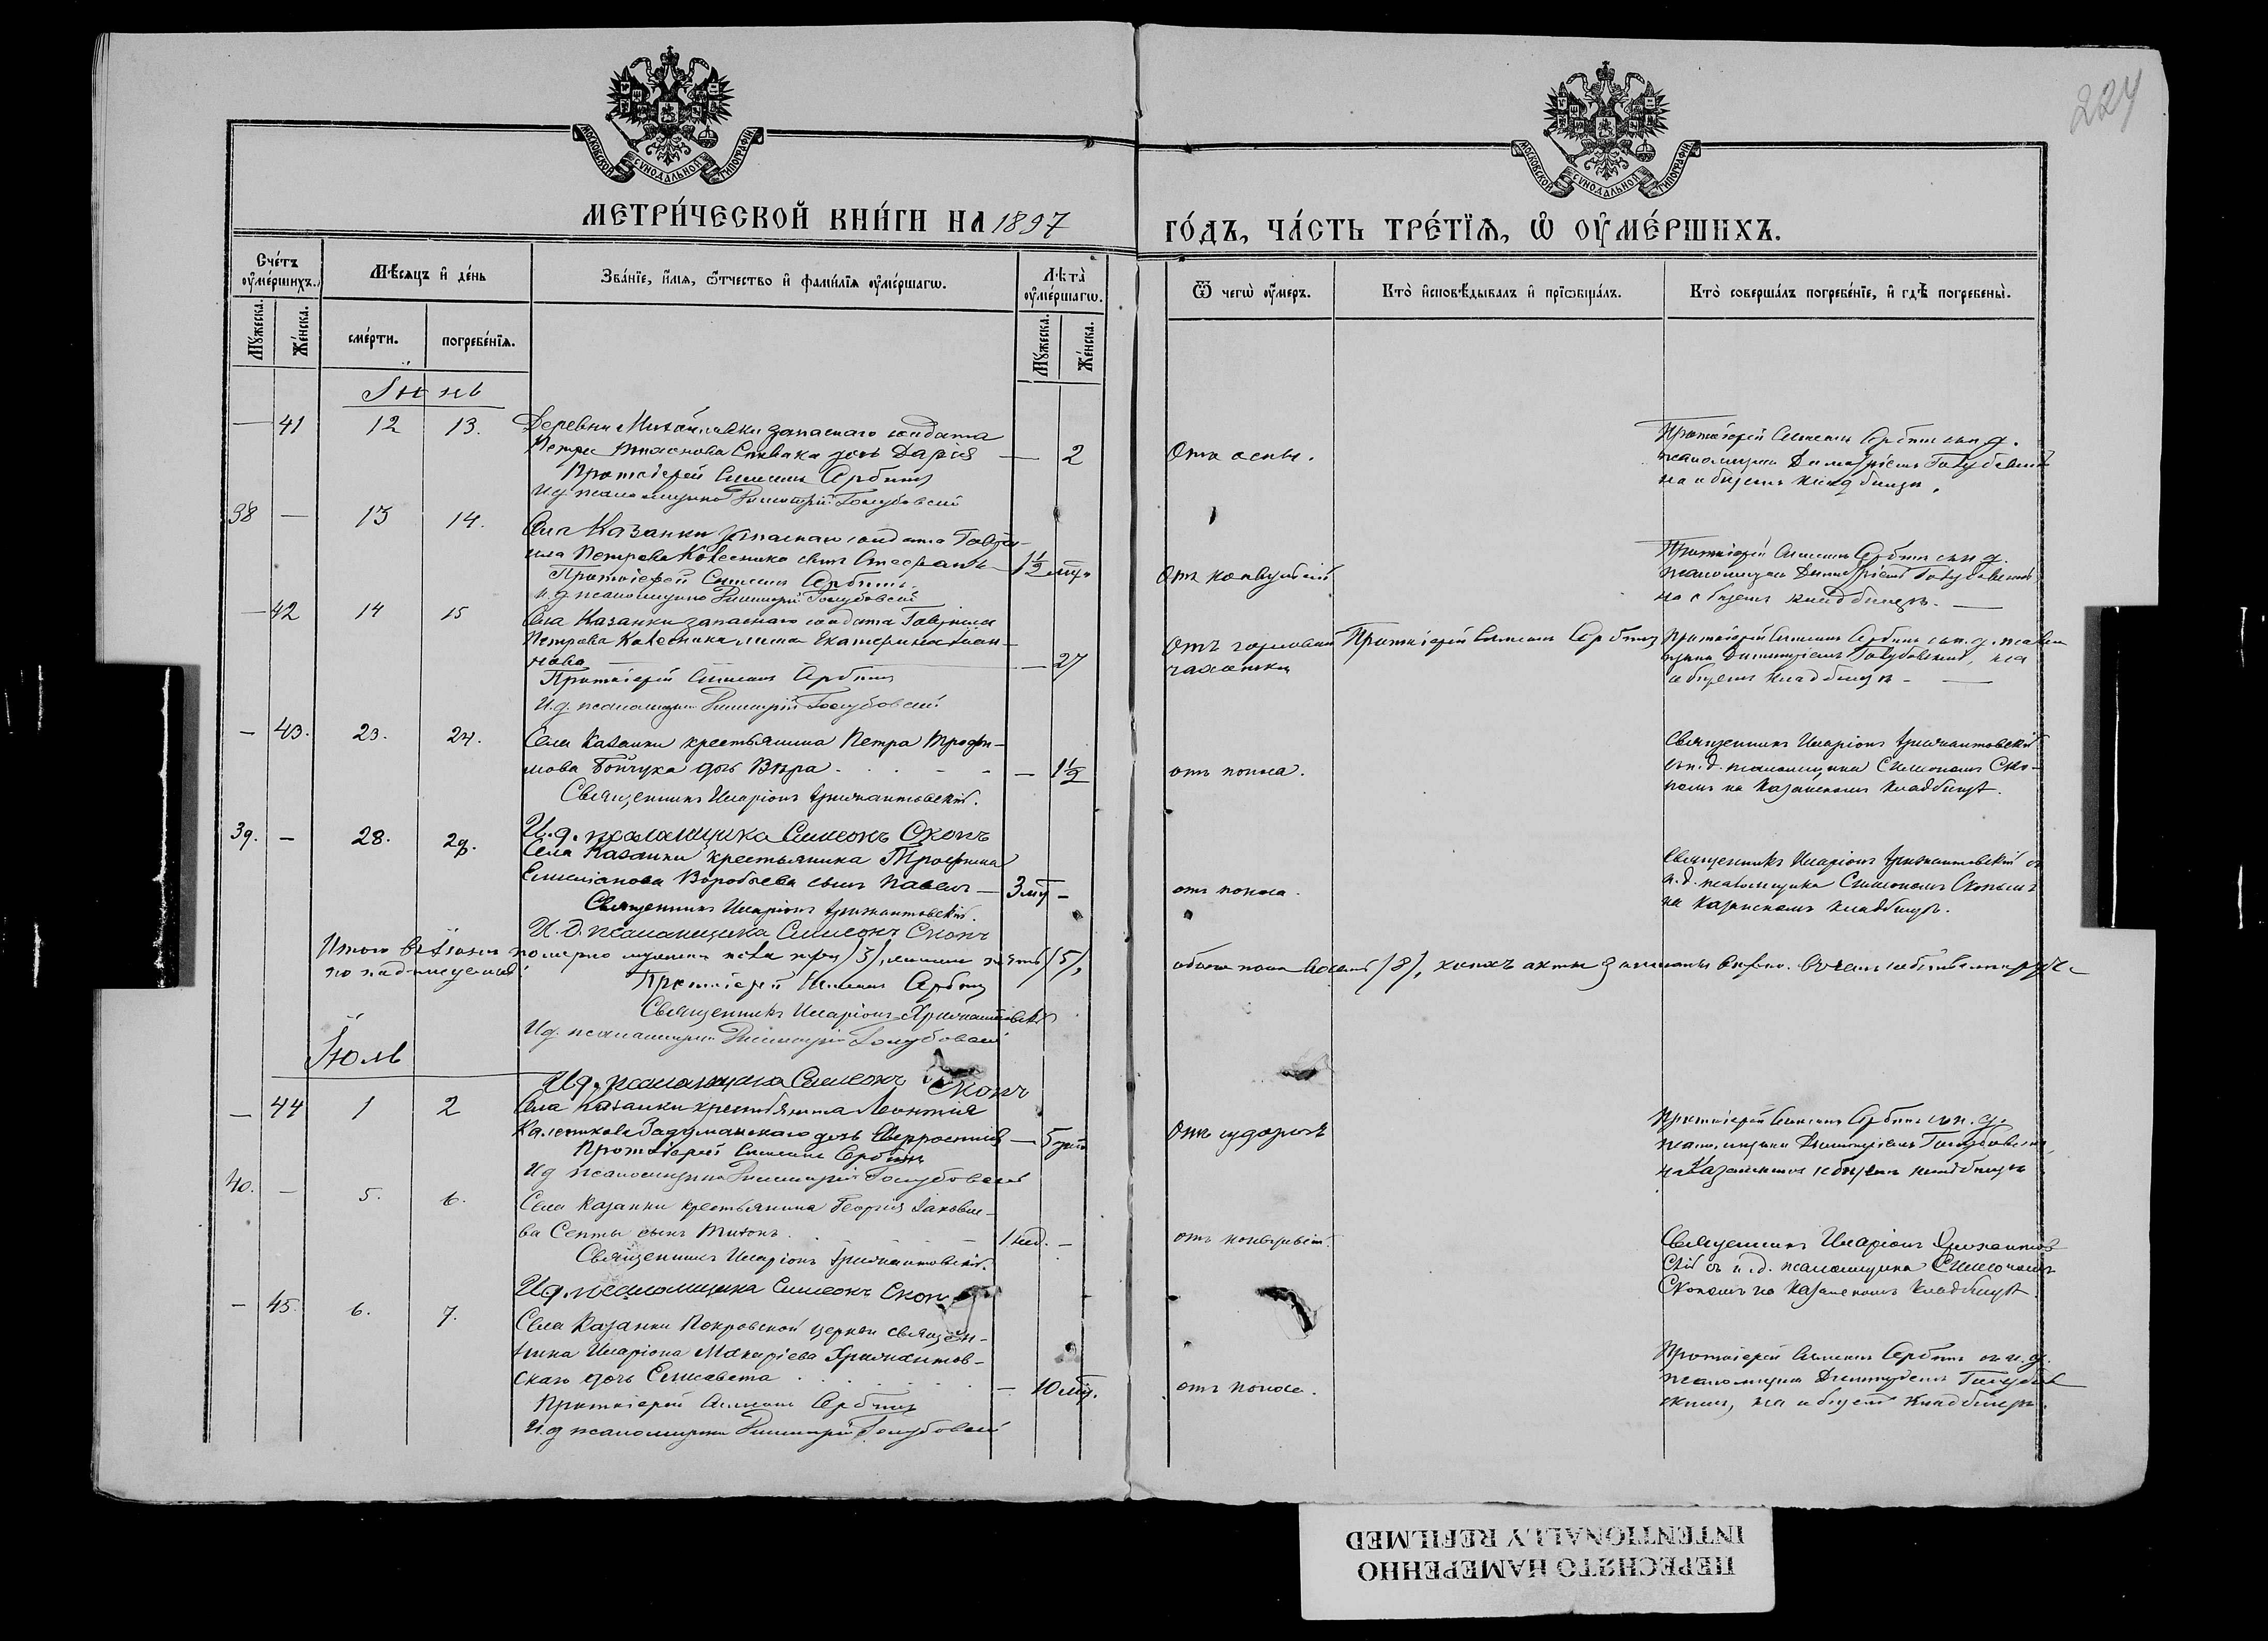 224
МОСКОВСКОЙ СУНОДАЛЬНОЙ ТИПОГРАФІИ
МОСКОВСКОЙ СУНОДАЛЬНОЙ ТИПОГРАФІИ
МЕТРИ́ЧЕСКОЙ КНИ́ГИ НА 1897
ГО́ДЪ, ЧА́СТЬ ТРЕ́ТЇѦ, Ѡ҆ ОУ҆МЕ́РШИХЪ.
Сче́тъ оу҆ме́ршихъ.
Мꙋ́жеска.
Же́нска.
Мѣ́сяцъ и҆ де́нь
сме́рти.
погребе́нїѧ.
Зва́нїе, и҆́мѧ, ѻ҆́тчество и҆ фами́лїѧ оу҆ме́ршагѡ.
Лѣ́та оу҆ме́ршагѡ.
Мꙋ́жеска.
Же́нска.
Ѿ чегѡ̀ оу҆́меръ.
Кто̀ и҆сповѣ́дывалъ и҆ прїѡбща́лъ.
Кто̀ соверша́лъ погребе́нїе, и҆ гдѣ̀ погребены̀.
Іюнь
— 41 12 13. Деревни Михайловки запаснаго солдата
Петра Співака дочь Дарія — 2
Протоіерей Симеонъ Арбинъ
И.д. псаломщика Димитрій Голубовскій
Отъ оспы.
Протоіерей Симеонъ Арбинъ съ и. д.
псаломщика Димитріемъ Голубовскимъ
на общемъ кладбищѣ.
38 — 13 14. Села Казанки запаснаго солдата Гаврі-
ила Петрова Колесника сынъ Стефанъ — 1½ мѣс.
Протоіерей Симеонъ Арбинъ.
и. д. псаломщика Димитрій Голубовскій
Отъ конвульсій
Протоіерей Симеонъ Арбинъ съ и. д.
псаломщика Димитріемъ Голубовскимъ
на общемъ кладбищѣ. —
— 42 14 15 Села Казанки запаснаго солдата Гавріила
Петрова Колесника жена Екатерина
— 27
Протоіерей Симеонъ Арбинъ
И.д. псаломщика Димитрій Голубовскій
Отъ горловой
чахотки
Протоіерей Симеонъ Арбинъ
Протоіерей Симеонъ Арбинъ съ и. д. псалом
щика Димитріемъ Голубовскимъ, на
общемъ кладбищѣ — —
— 43. 23. 24. Села Казанки крестьянина Петра Трофи-
мова Бойчука дочь Вѣра — 1½
Священникъ Иларіонъ
отъ поноса.
Священникъ Иларіонъ
съ и. д. псаломщика Симеономъ Ско-
помъ на Казанскомъ кладбищѣ.
И. д. псаломщика Симеонъ Скопъ
39. — 28. 29. Села Казанки крестьянина Трофима
Емиліанова Воробьева сынъ Павелъ — 3 мѣс —
Священникъ Иларіонъ
И. д. псаломщика Симеонъ Скопъ
отъ поноса.
Священникъ Иларіонъ съ
и. д. псаломщика Симеономъ Скопомъ
на Казанскомъ кладбищѣ.
Итого въ Іюнѣ померло мужеска пола три /3/, женска пять /5/,
обоего пола восемь /8/, коихъ акты записаны вѣрно. Въ чемъ
по надлежащей
Протоіерей Симеонъ Арбинъ
Священникъ Иларіонъ
И.д. псаломщика Димитрій Голубовскій
И.д. псаломщика Симеонъ Скопъ
Іюль
— 44 1 2 Села Казанки крестьянина Леонтія
Калиникова Задуманскаго дочь — 5 дней
Протоіерей Симеонъ Арбинъ
И.д. псаломщика Димитрій Голубовскій
Отъ судорогъ
Протоіерей Симеонъ Арбинъ съ и. д.
псаломщика Димитріемъ Голубовскимъ,
на Казанскомъ общемъ кладбищѣ
40. — 5. 6. Села Казанки крестьянина Георгія Іаковле-
ва Септы сынъ Титонъ 1 нед. —
Священникъ Иларіонъ
отъ конвульсій.
Священникъ Иларіонъ
скій съ и. д. псаломщика Симеономъ
Скопомъ на Казанскомъ кладбищѣ.
И.д. псаломщика Симеонъ Скопъ
— 45. 6. 7. Села Казанки Покровской церкви священ-
ника Иларіона Макаріева
скаго дочь Елисавета — 10 мѣс.
Протоіерей Симеонъ Арбинъ
И.д. псаломщика Димитрій Голубовскій
отъ поноса.
Протоіерей Симеонъ Арбинъ съ и. д.
псаломщика Димитріемъ Голубов
скимъ, на общемъ кладбищѣ.
ПЕРЕСНЯТО НАМЕРЕННО
INTENTIONALLY REFILMED